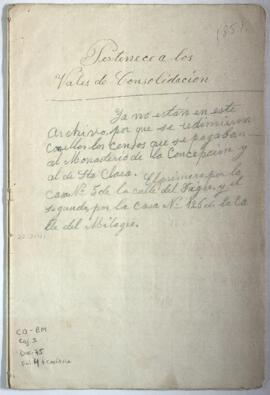 1851
Pertenece a los
Vales de Consolidacion
Ya no están en este
Archivo, por que se redimieron
con ellos los censos que se pagaban
al Monasterio de la Concepción y
al de Sta Clara. El primero por la
casa Nº 5 de la calle del y el
segundo por la Casa Nº 126 de la Ca
lle del Milagro.
CO-BM
Caj. 2
Doc. 45